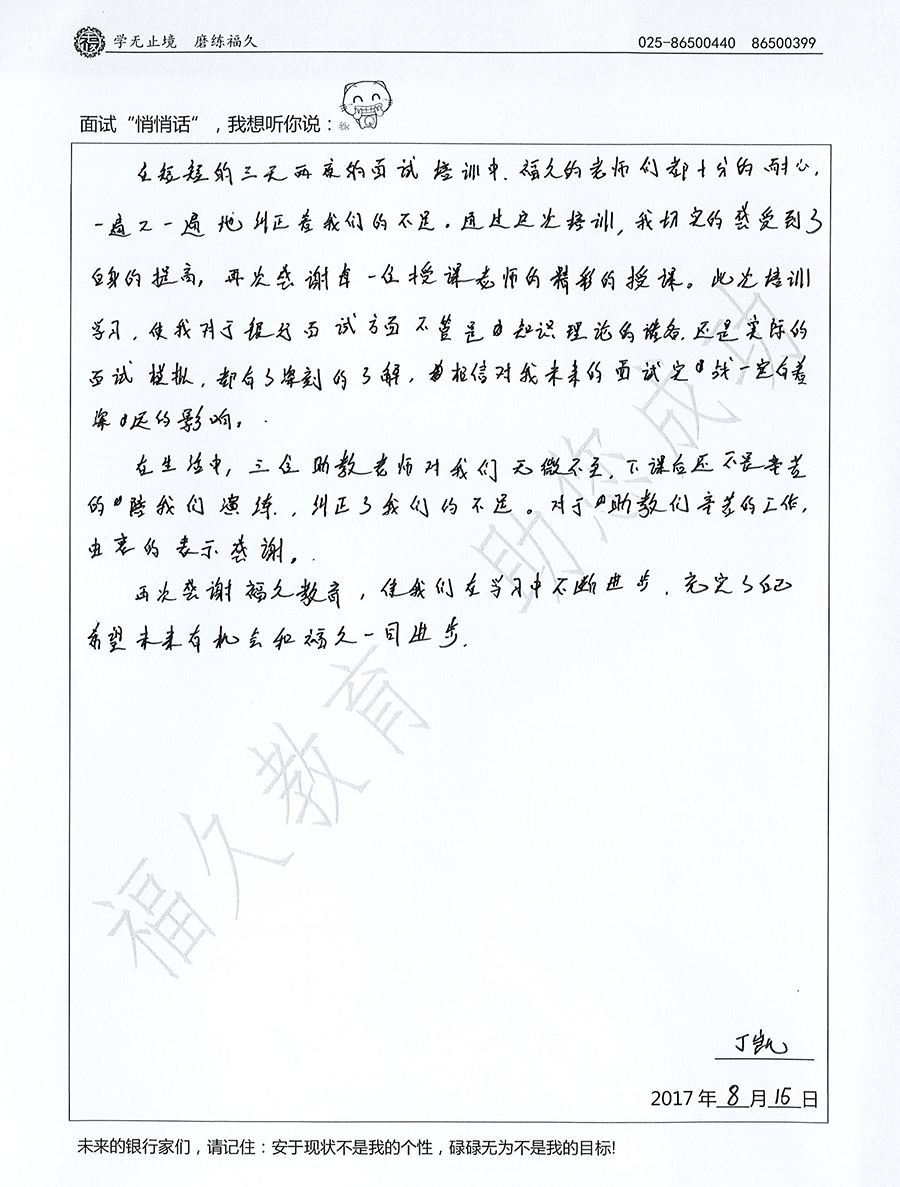 学无止境 磨练福久
025-86500440 86500399
面试“悄悄话”，我想听你说：
在短短的三天两夜的面试培训中，福久的老师们都十分的耐心，
一遍又一遍地纠正着我们的不足。通过这次培训，我切实的感受到了
自身的提高，再次感谢每一位授课老师的精彩的授课。此次培训
学习，使我对于银行面试方面不管是知识理论的储备，还是实际的
面试模拟，都有了深刻的了解，相信对我未来的面试实战一定有着
深远的影响。
在生活中，三位助教老师对我们无微不至，下课后还不畏辛苦
的陪我们演练，纠正了我们的不足。对于助教们辛苦的工作，
由衷的表示感谢。
再次感谢福久教育，使我们在学习中不断进步，充实了自己
希望未来有机会和福久一同进步。
福久教育 助您成功
丁凯
2017年8月15日
未来的银行家们，请记住：安于现状不是我的个性，碌碌无为不是我的目标!